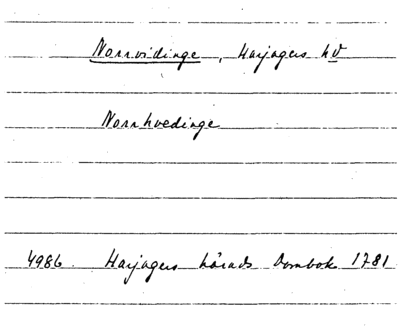 Norrvidinge, Harjagers hd
Norrhvedinge
4986. Harjagers härads Dombok 1781